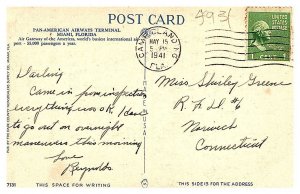 POST CARD
493/
PAN-AMERICAN AIRWAYS TERMINAL
MIAMI, FLORIDA
Air Gateway of the Americas, world's busiest international air
port - 55,000 passengers a year.
CAMP BLANDING
MAY 15
5-PM
1941
FLA.
1
Darling
Came in from inspection
everything was O.K. I have
to go out on overnight
maneuvers this morning
Love
Reynolds
Miss Shirley Greene
R.F.D. #6
Norwich
Connecticut
7131
THIS SPACE FOR WRITING
THIS SIDE IS FOR THE ADDRESS